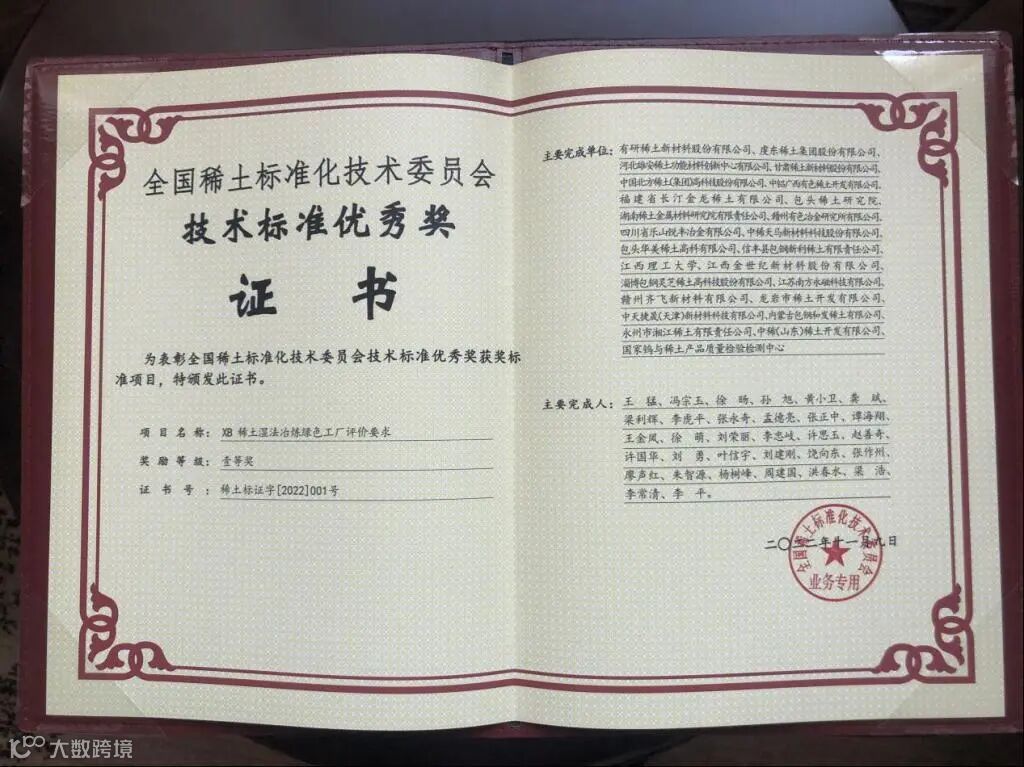 全国稀土标准化技术委员会
技术标准优秀奖
证 书
为表彰全国稀土标准化技术委员会技术标准优秀奖获奖标
准项目，特颁发此证书。
项目名称： XB 稀土湿法冶炼绿色工厂评价要求
奖励等级： 壹等奖
证书号： 稀土标证字[2022]001号
主要完成单位：有研稀土新材料股份有限公司、虔东稀土集团股份有限公司、
河北雄安稀土功能材料创新中心有限公司、甘肃稀土新材料股份有限公司、
中国北方稀土(集团)高科技股份有限公司、中铝广西有色稀土开发有限公司、
福建省长汀金龙稀土有限公司、包头稀土研究院、
湖南稀土金属材料研究院有限责任公司、赣州有色冶金研究所有限公司、
四川省乐山锐丰冶金有限公司、中稀天马新材料科技股份有限公司、
包头华美稀土高科有限公司、信丰县包钢新利稀土有限责任公司、
江西理工大学、江西金世纪新材料股份有限公司、
淄博包钢灵芝稀土高科技股份有限公司、江苏南方永磁科技有限公司、
赣州齐飞新材料有限公司、龙岩市稀土开发有限公司、
中天捷晟(天津)新材料科技有限公司、内蒙古包钢和发稀土有限公司、
永州市湘江稀土有限责任公司、中稀(山东)稀土开发有限公司、
国家钨与稀土产品质量检验检测中心
主要完成人：王 猛、冯宗玉、徐 旸、孙 旭、黄小卫、龚 斌、
梁利辉、李虎平、张永奇、孟德亮、张正中、谭海翔、
王金凤、徐 萌、刘荣丽、李忠岐、许思玉、赵善奇、
许国华、刘 勇、叶信宇、刘建刚、饶向东、张作州、
廖声红、朱智源、杨树峰、周建国、洪春水、梁 浩、
李常清、李 平。
二〇二二年十一月九日
全国稀土标准化技术委员会
业务专用
大数跨境